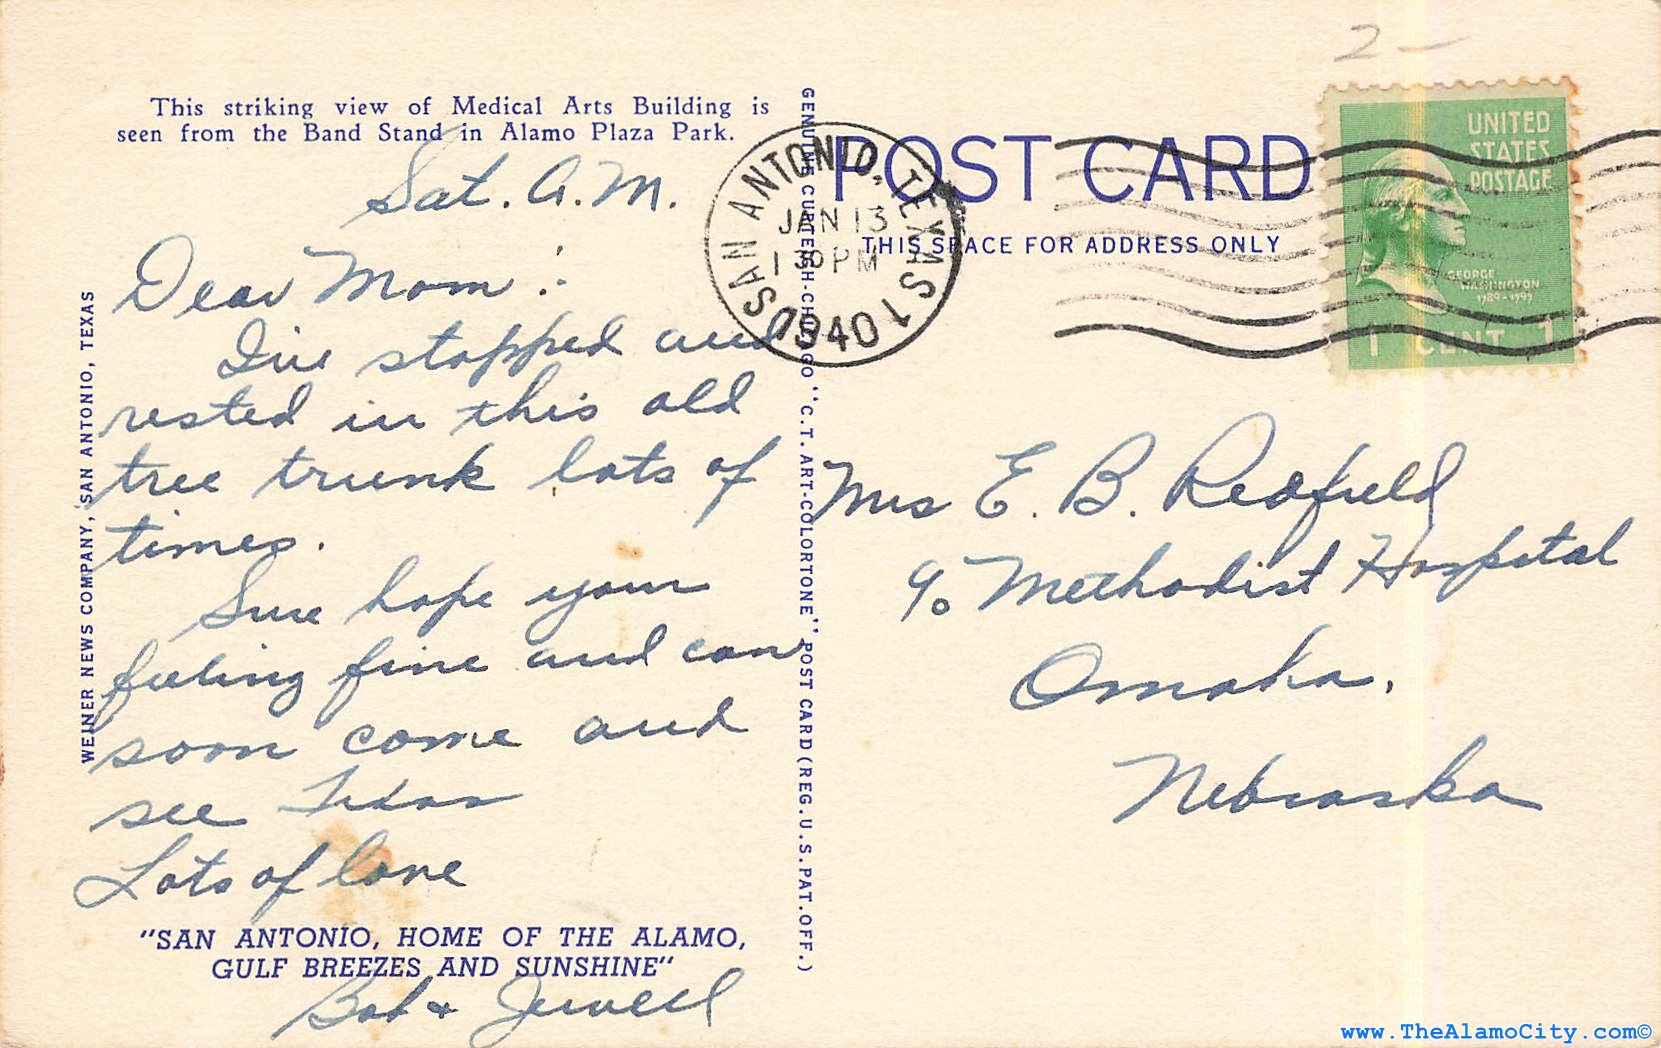 2 -
This striking view of Medical Arts Building is
seen from the Band Stand in Alamo Plaza Park.
Sat. A.M.
Dear Mom :
I've stopped and
rested in this old
tree trunk lots of
times.
Sure hope your
feeling fine and can
soon come and
see Texas
Lots of love
"SAN ANTONIO, HOME OF THE ALAMO,
GULF BREEZES AND SUNSHINE"
Bob & Jewell
WEINER NEWS COMPANY, SAN ANTONIO, TEXAS
GENUINE CURTEICH-CHICAGO "C.T. ART-COLORTONE" POST CARD (REG. U.S. PAT. OFF.)
POST CARD
THIS SPACE FOR ADDRESS ONLY
SAN ANTONIO, TEXAS 1
JAN 13
1 30 PM
1940
UNITED
STATES
POSTAGE
GEORGE
WASHINGTON
1789-1797
1 CENT 1
Mrs E. B. Redfield
% Methodist Hospital
Omaha,
Nebraska
www.TheAlamoCity.com©